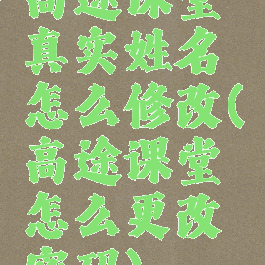 高途课堂
真实姓名
怎么修改(
高途课堂
怎么更改
密码)